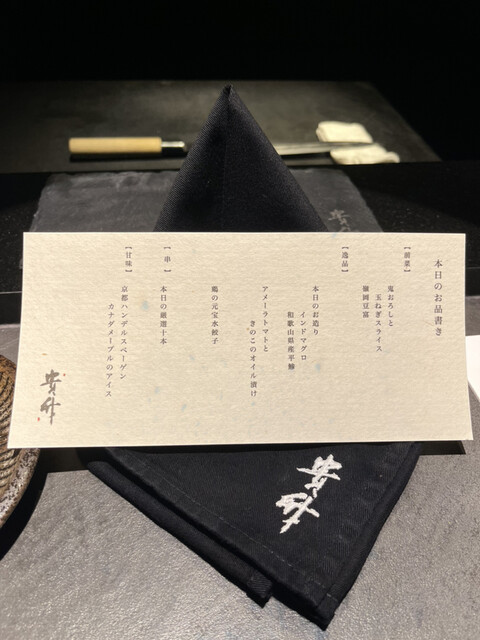 本日のお品書き
【前菜】
鬼おろしと
玉ねぎスライス
嶺岡豆富
【逸品】
本日のお造り
インドマグロ
和歌山県産平鱸
アメーラトマトと
きのこのオイル漬け
鶏の元宝水餃子
【串】
本日の厳選十本
【甘味】
京都ハンデルスベーゲン
カナダメープルのアイス